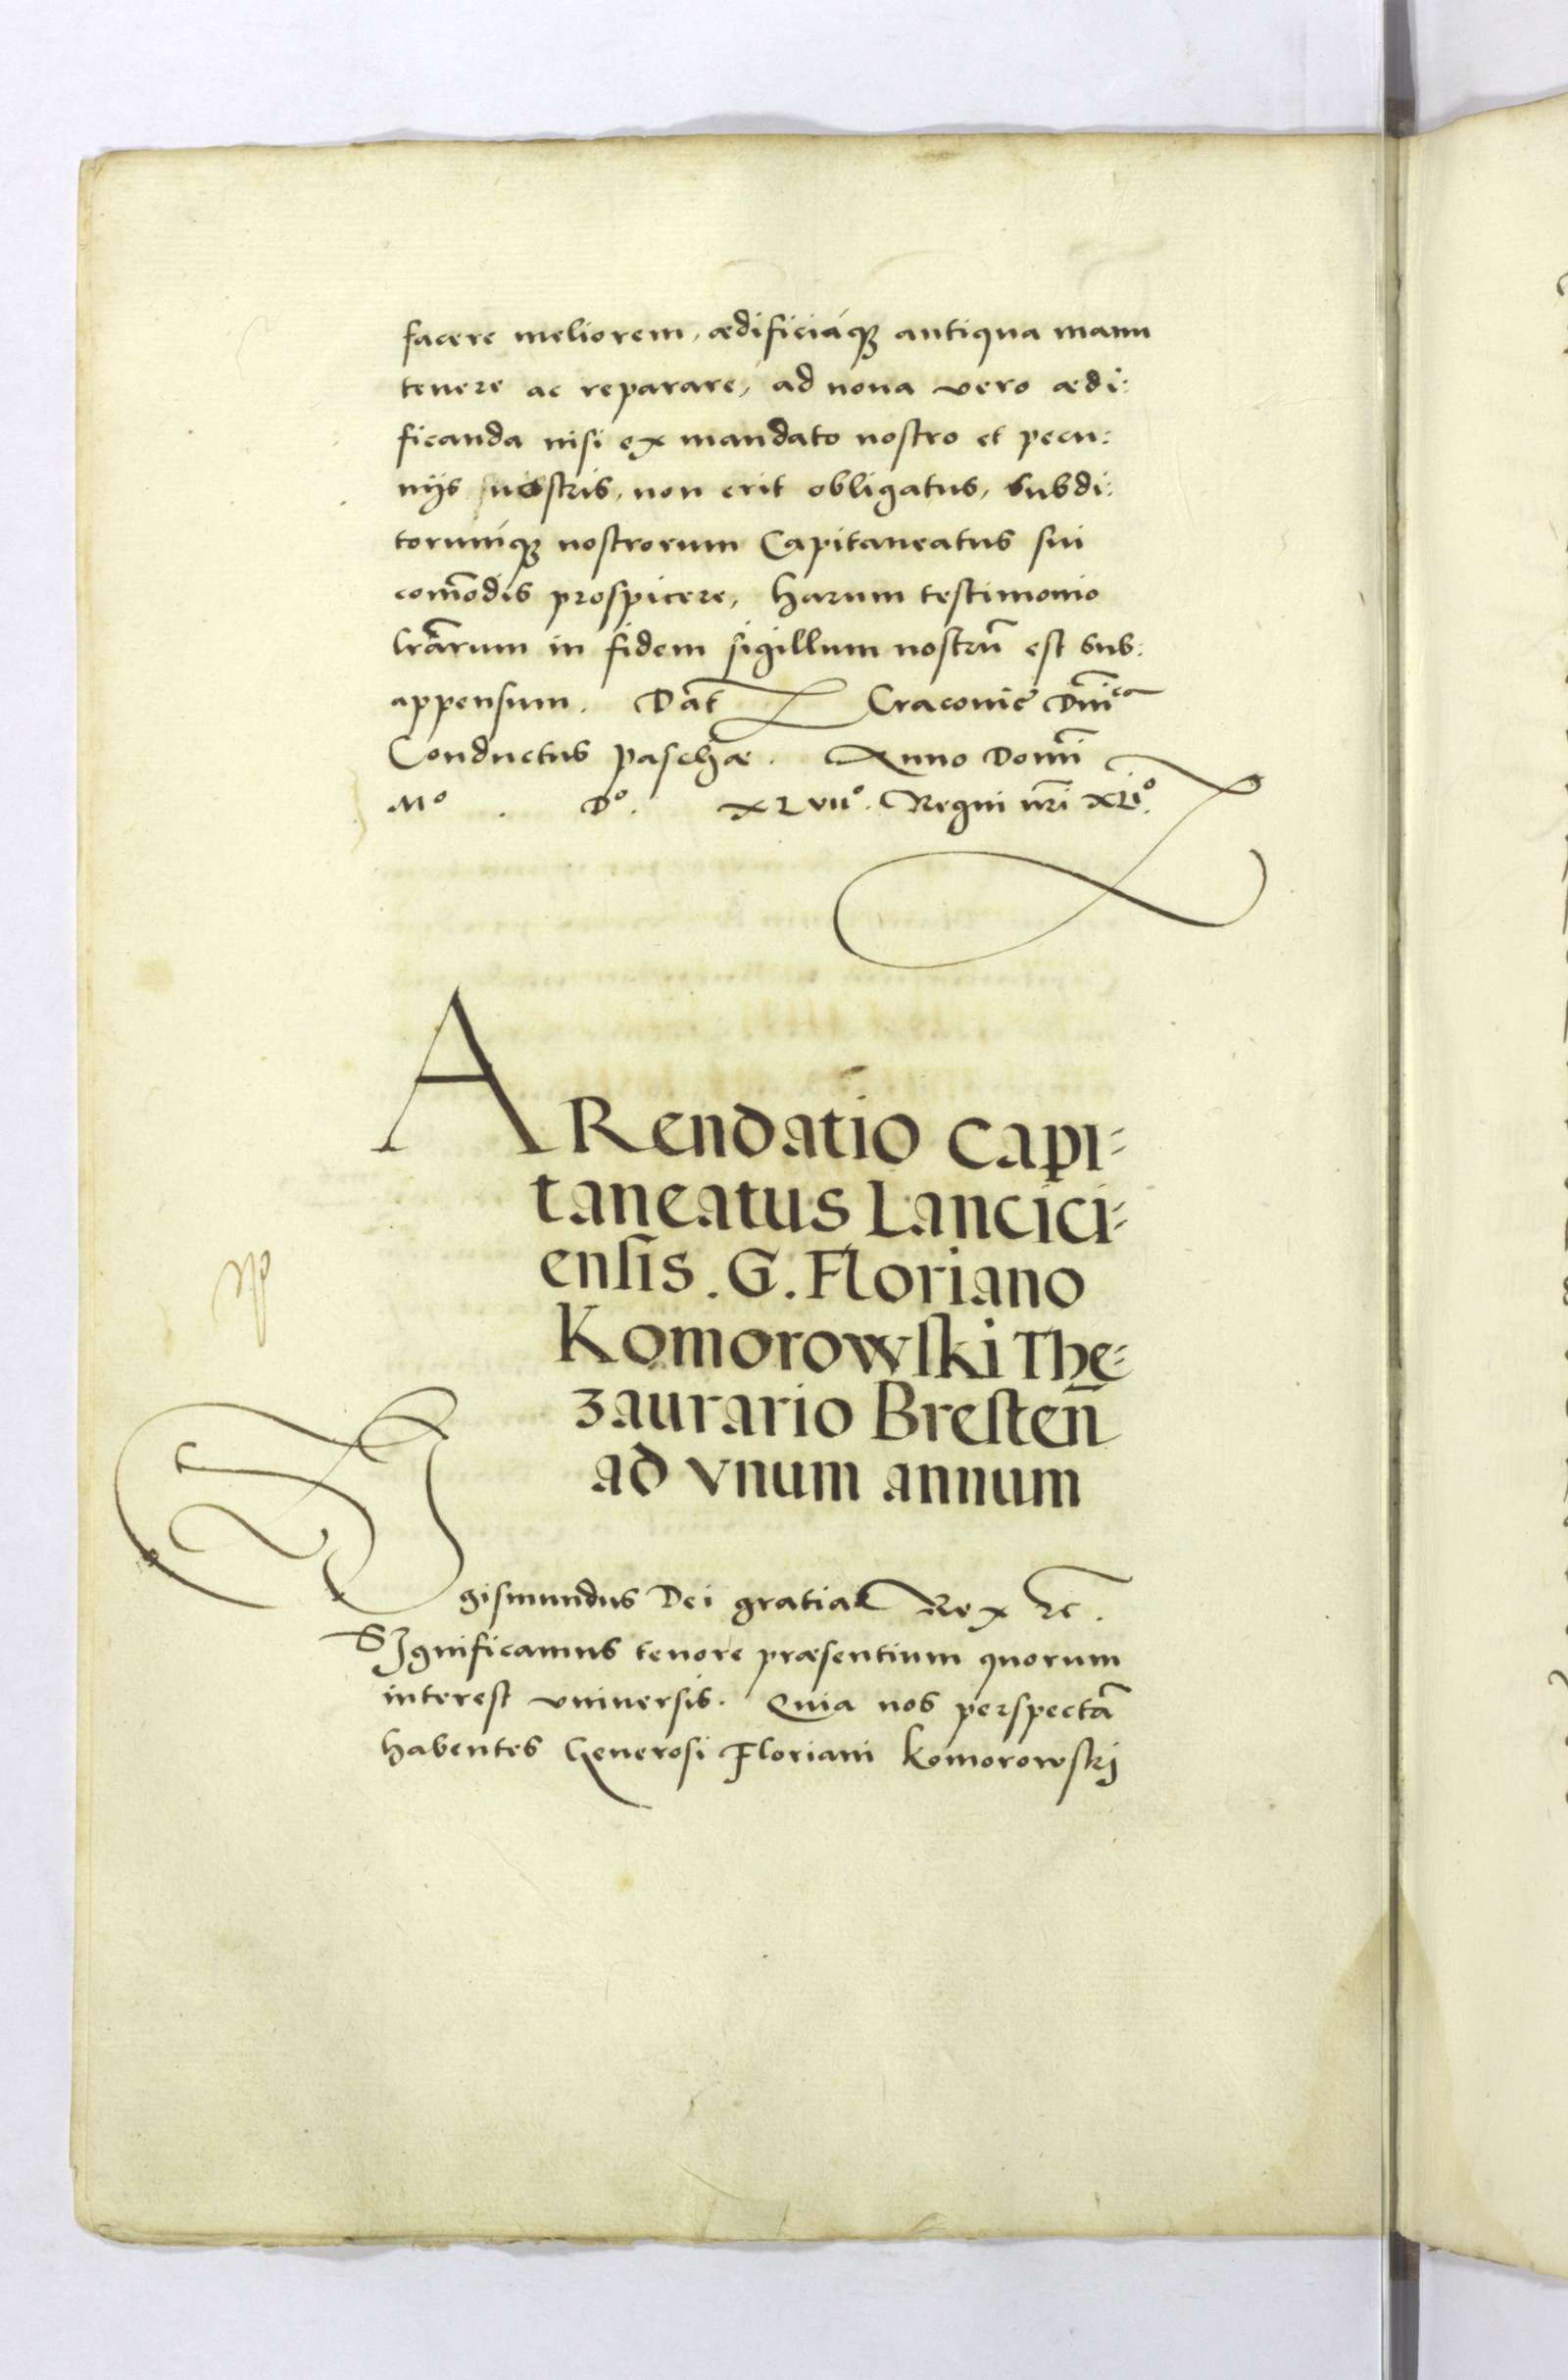 facere meliorem, ædificiáq; antiqua manu
tenere ac reparare, ad noua vero ædi:
ficanda nisi ex mandato nostro et pecu:
nijs nostris, non erit obligatus, Subdi:
torumq́; nostrorum Capitaneatus sui
com̄odis prospicere, Harum testimonio
l̃rarum in fidem sigillum nostrũ est sub:
appensum. Dat̃ Cracovię Dñica
Conductus paschæ. Anno Domĩ
Mº. Dº. XLVIIº. Regni nr̃i XLIº.
ARendatio Capi-
taneatus Lancici-
ensis. G. Floriano
Komorowski The-
zaurario Bresten̄
ad vnum annum
Sigismundus Dei gratia Rex etc̃.
SIgnificamus tenore præsentium quorum
interest vniuersis. Quia nos perspectã
habentes Generosi Floriani Komorowskj